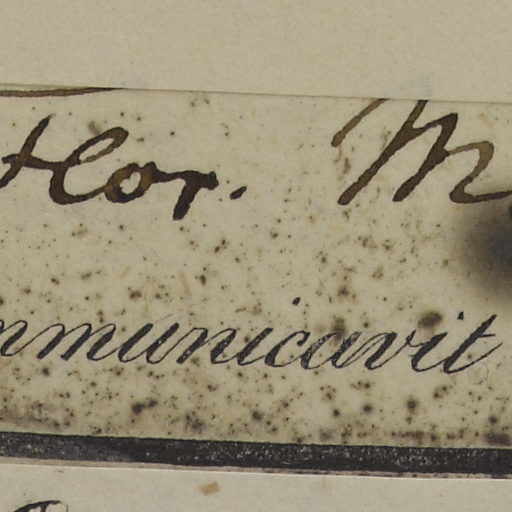 Hor. M
mmunicavit